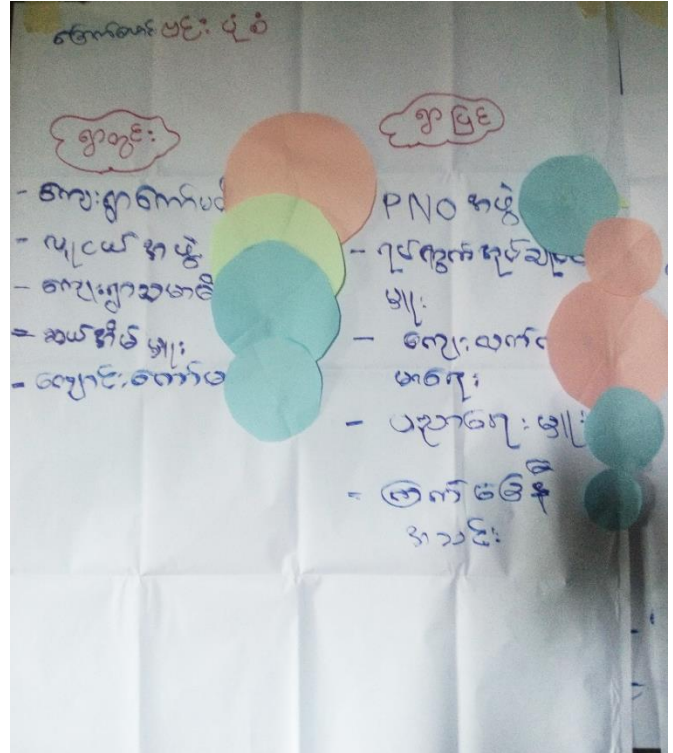 ဗင်းပုံစံ
ရွာတွင်း
- ကျေးရွာကော်မတီ
- လူငယ်အဖွဲ့
- ကျေးရွာသမာဓိ
- ဆယ်အိမ်မှူး
- ကျောင်းကော်မ
ရွာပြင်
PNO အဖွဲ့
- ရပ်ကွက်အုပ်ချုပ်
မှူး
- ကျေးလက်
မာရေး
- ပညာရေးမှူး
- ကြက်ခြေနီ
အသင်း